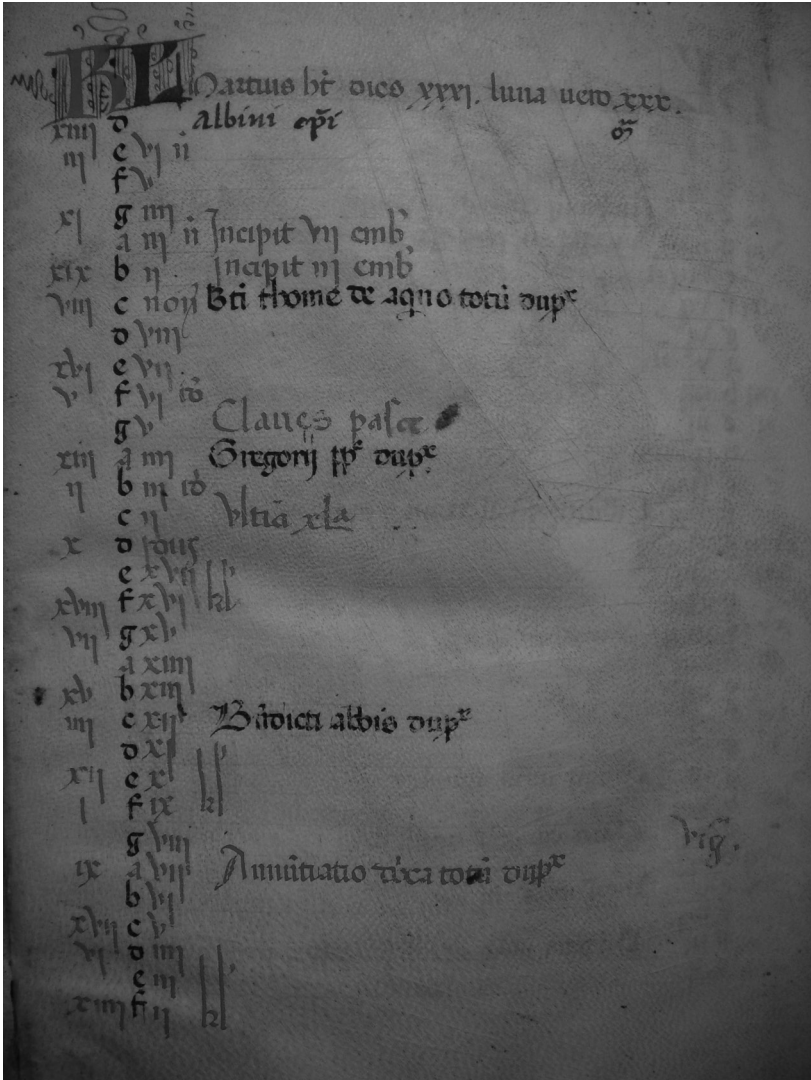 KL Martius ht dies xxxi. luna uero xxx.
xiiii d Albini epi
iii e vi n
f v
xi g iiii
a iii n Incipit vii emb
xix b ii Incipit iii emb
viii c non Bti thome de aqno totu dupx
d viii
xvi e vii
v f vi id
g v Claues pasce
xiii a iiii Gregorii pp dupx
ii b iii id
c ii Vltia xla
x d idus
e xvii kl
xviii f xvi
vii g xv
a xiiii
xv b xiii
iiii c xii Bndicti abbis dupx
d xi
xii e x kl
i f ix
g viii vig.
ix a vii Annutiatio dnica totu dupx
b vi
xvii c v
vi d iiii
e iii kl
xiiii f ii